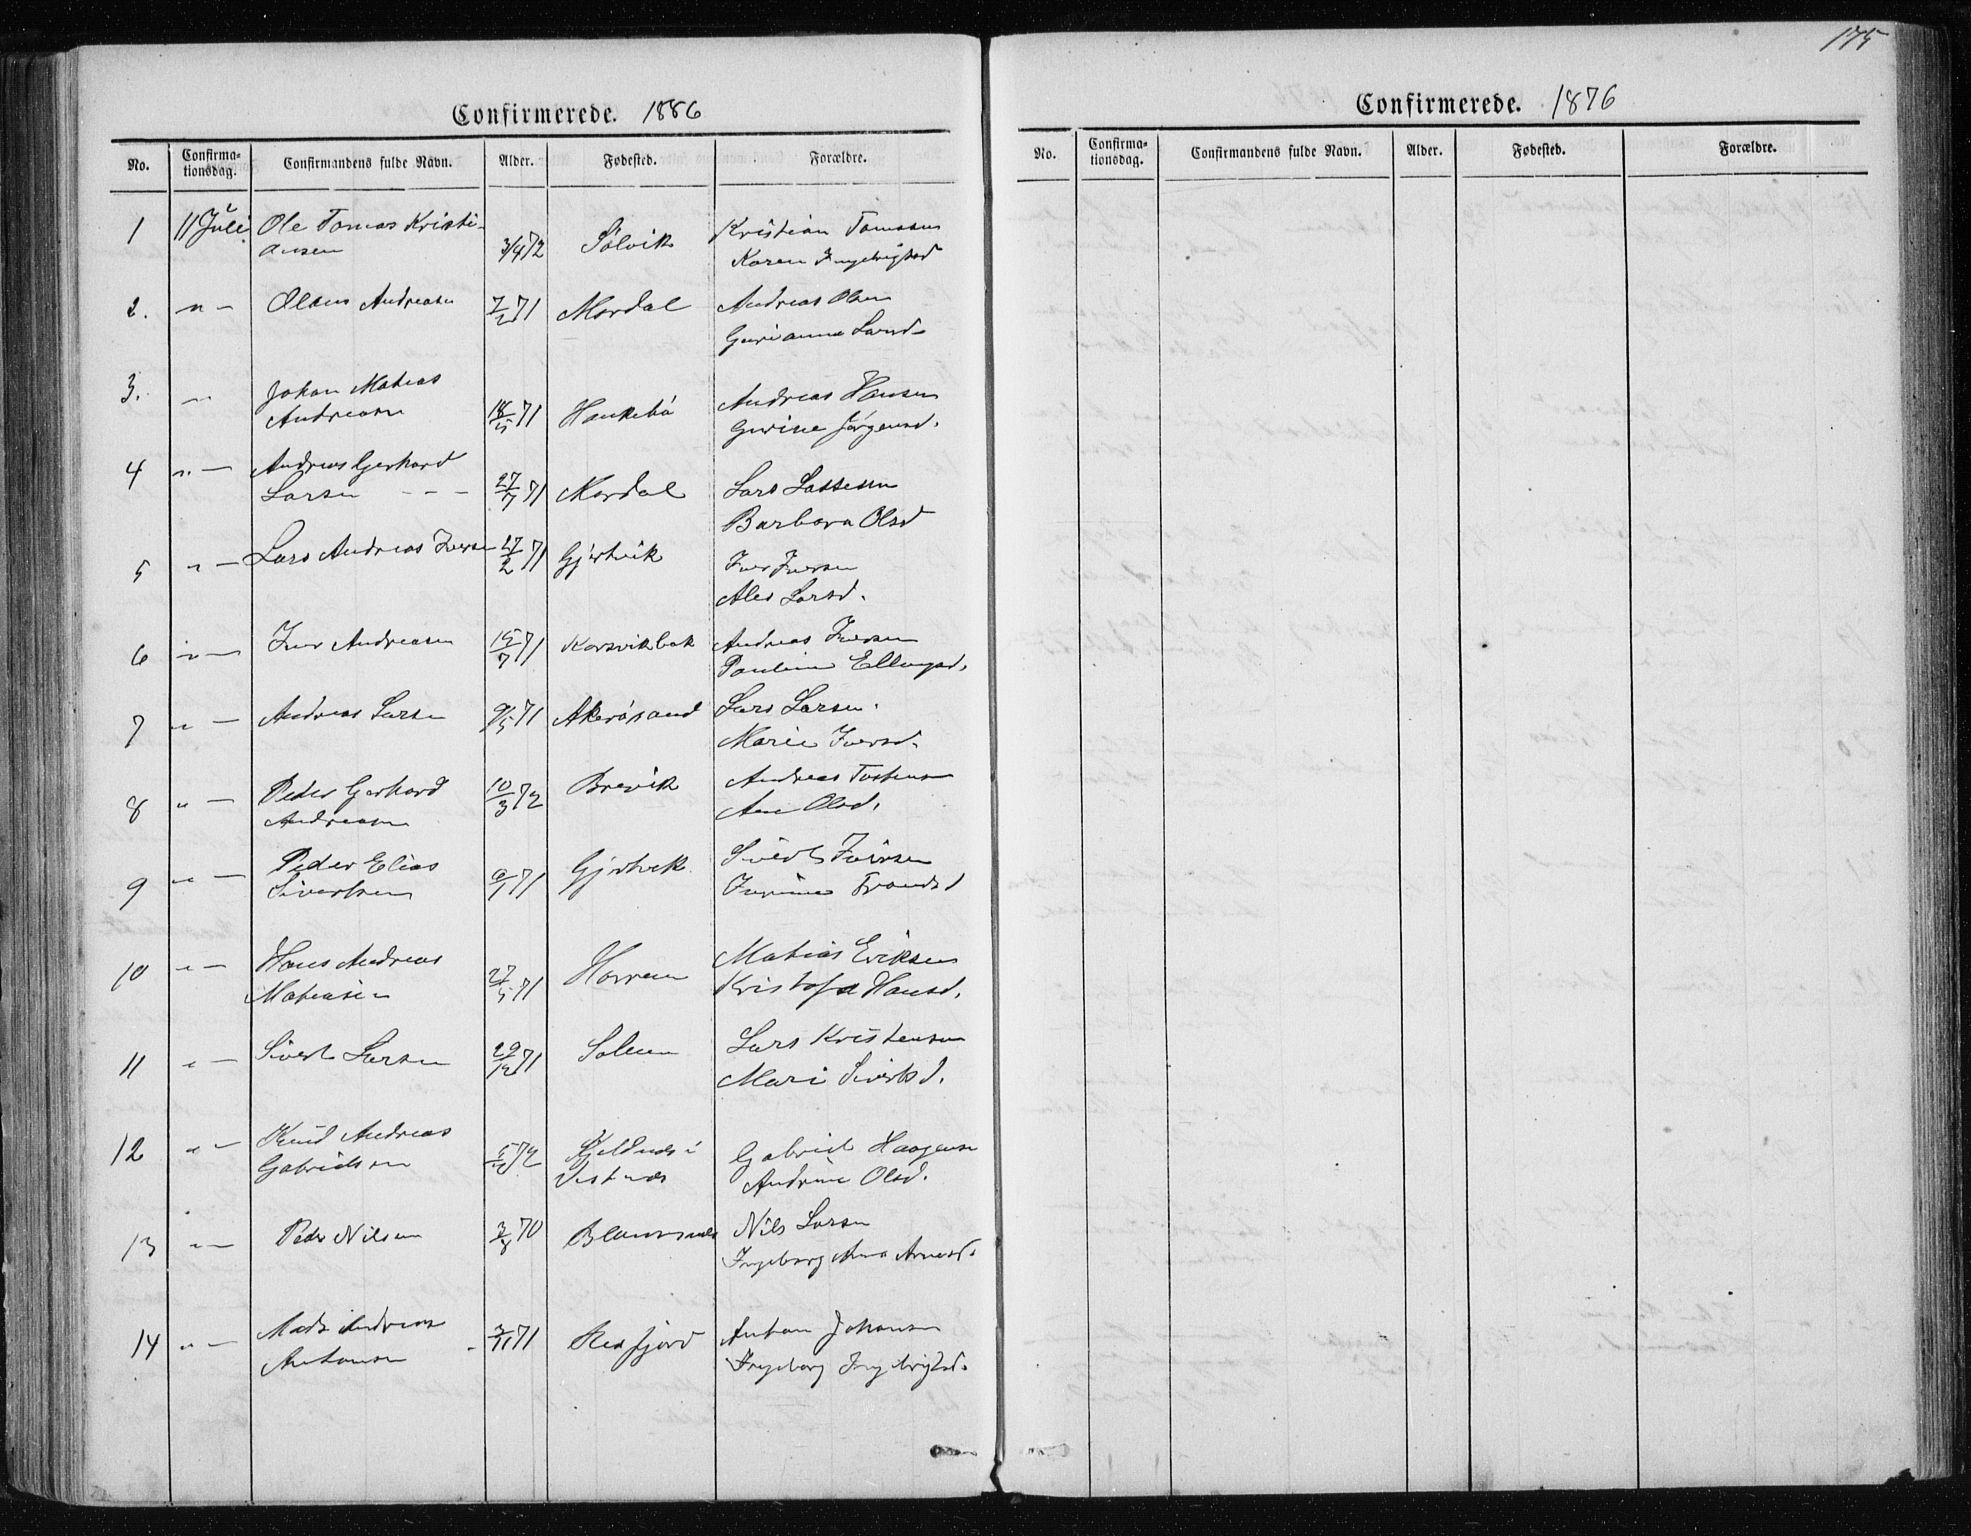 175
Confirmerede. 1886
No. Confirma-tionsdag. Confirmandens fulde Navn. Alder. Fødested. Forældre.
1 11 Juli Ole Tomas Kristi- Kristian Tomasen
ansen 3/4 72 Sølvik Karen Ingebrigtsd
2. " — Olaus Andreasen 7/2 71 Mordal Andreas Olsen
Gurianna Larsd.
3. " Johan Matias Andreas Hansen
Andreasen 18/5 71 Haukebø Gurine Jørgensd.
4 " — Andreas Gerhard
Larsen - - - 27/7 71 Mordal Lars Lassesen
Barbara Olsd
5 " — Lars Andreas Iversen 27/2 71 Gjertvik Iver Iversen
Ales Larsd.
6 " — Iver Andreasen 15/7 71 Korsvikbak Andreas Iversen
Pauline Ellingsd.
7 " — Andreas Larsen 9/5 71 Akerøsand Lars Larsen.
Marie Iversd.
8 " — Peder Gerhard 10/3 72 Brevik Andreas Tostensen
Andreasen Ane Olsd.
9 " — Peder Elias Gjertvik Sivert Iversen
Sivertsen 6/1 71
10 " — Hans Andreas Horrem Matias Eriksen
Matiasen 27/5 71 Kristofa Hansd.
11 " — Sivert Larsen 29/12 71 Solem Lars Kristensen
Mari Sivertsd.
12 " — Knud Andreas Gabriel Haagensen
Gabrielsen 72 Vestnes Andrine Olsd.
13 " — Peder Nilsen 3/8 70 Nils Larsen
Ingeborg Ana Arnesd.
14 " — Mads Andreas 3/11 71 Anton Johansen
Antonsen Ingeborg Ingebrigtsd.
Confirmerede. 1876
No. Confirma-tionsdag. Confirmandens fulde Navn. Alder. Fødested. Forældre.